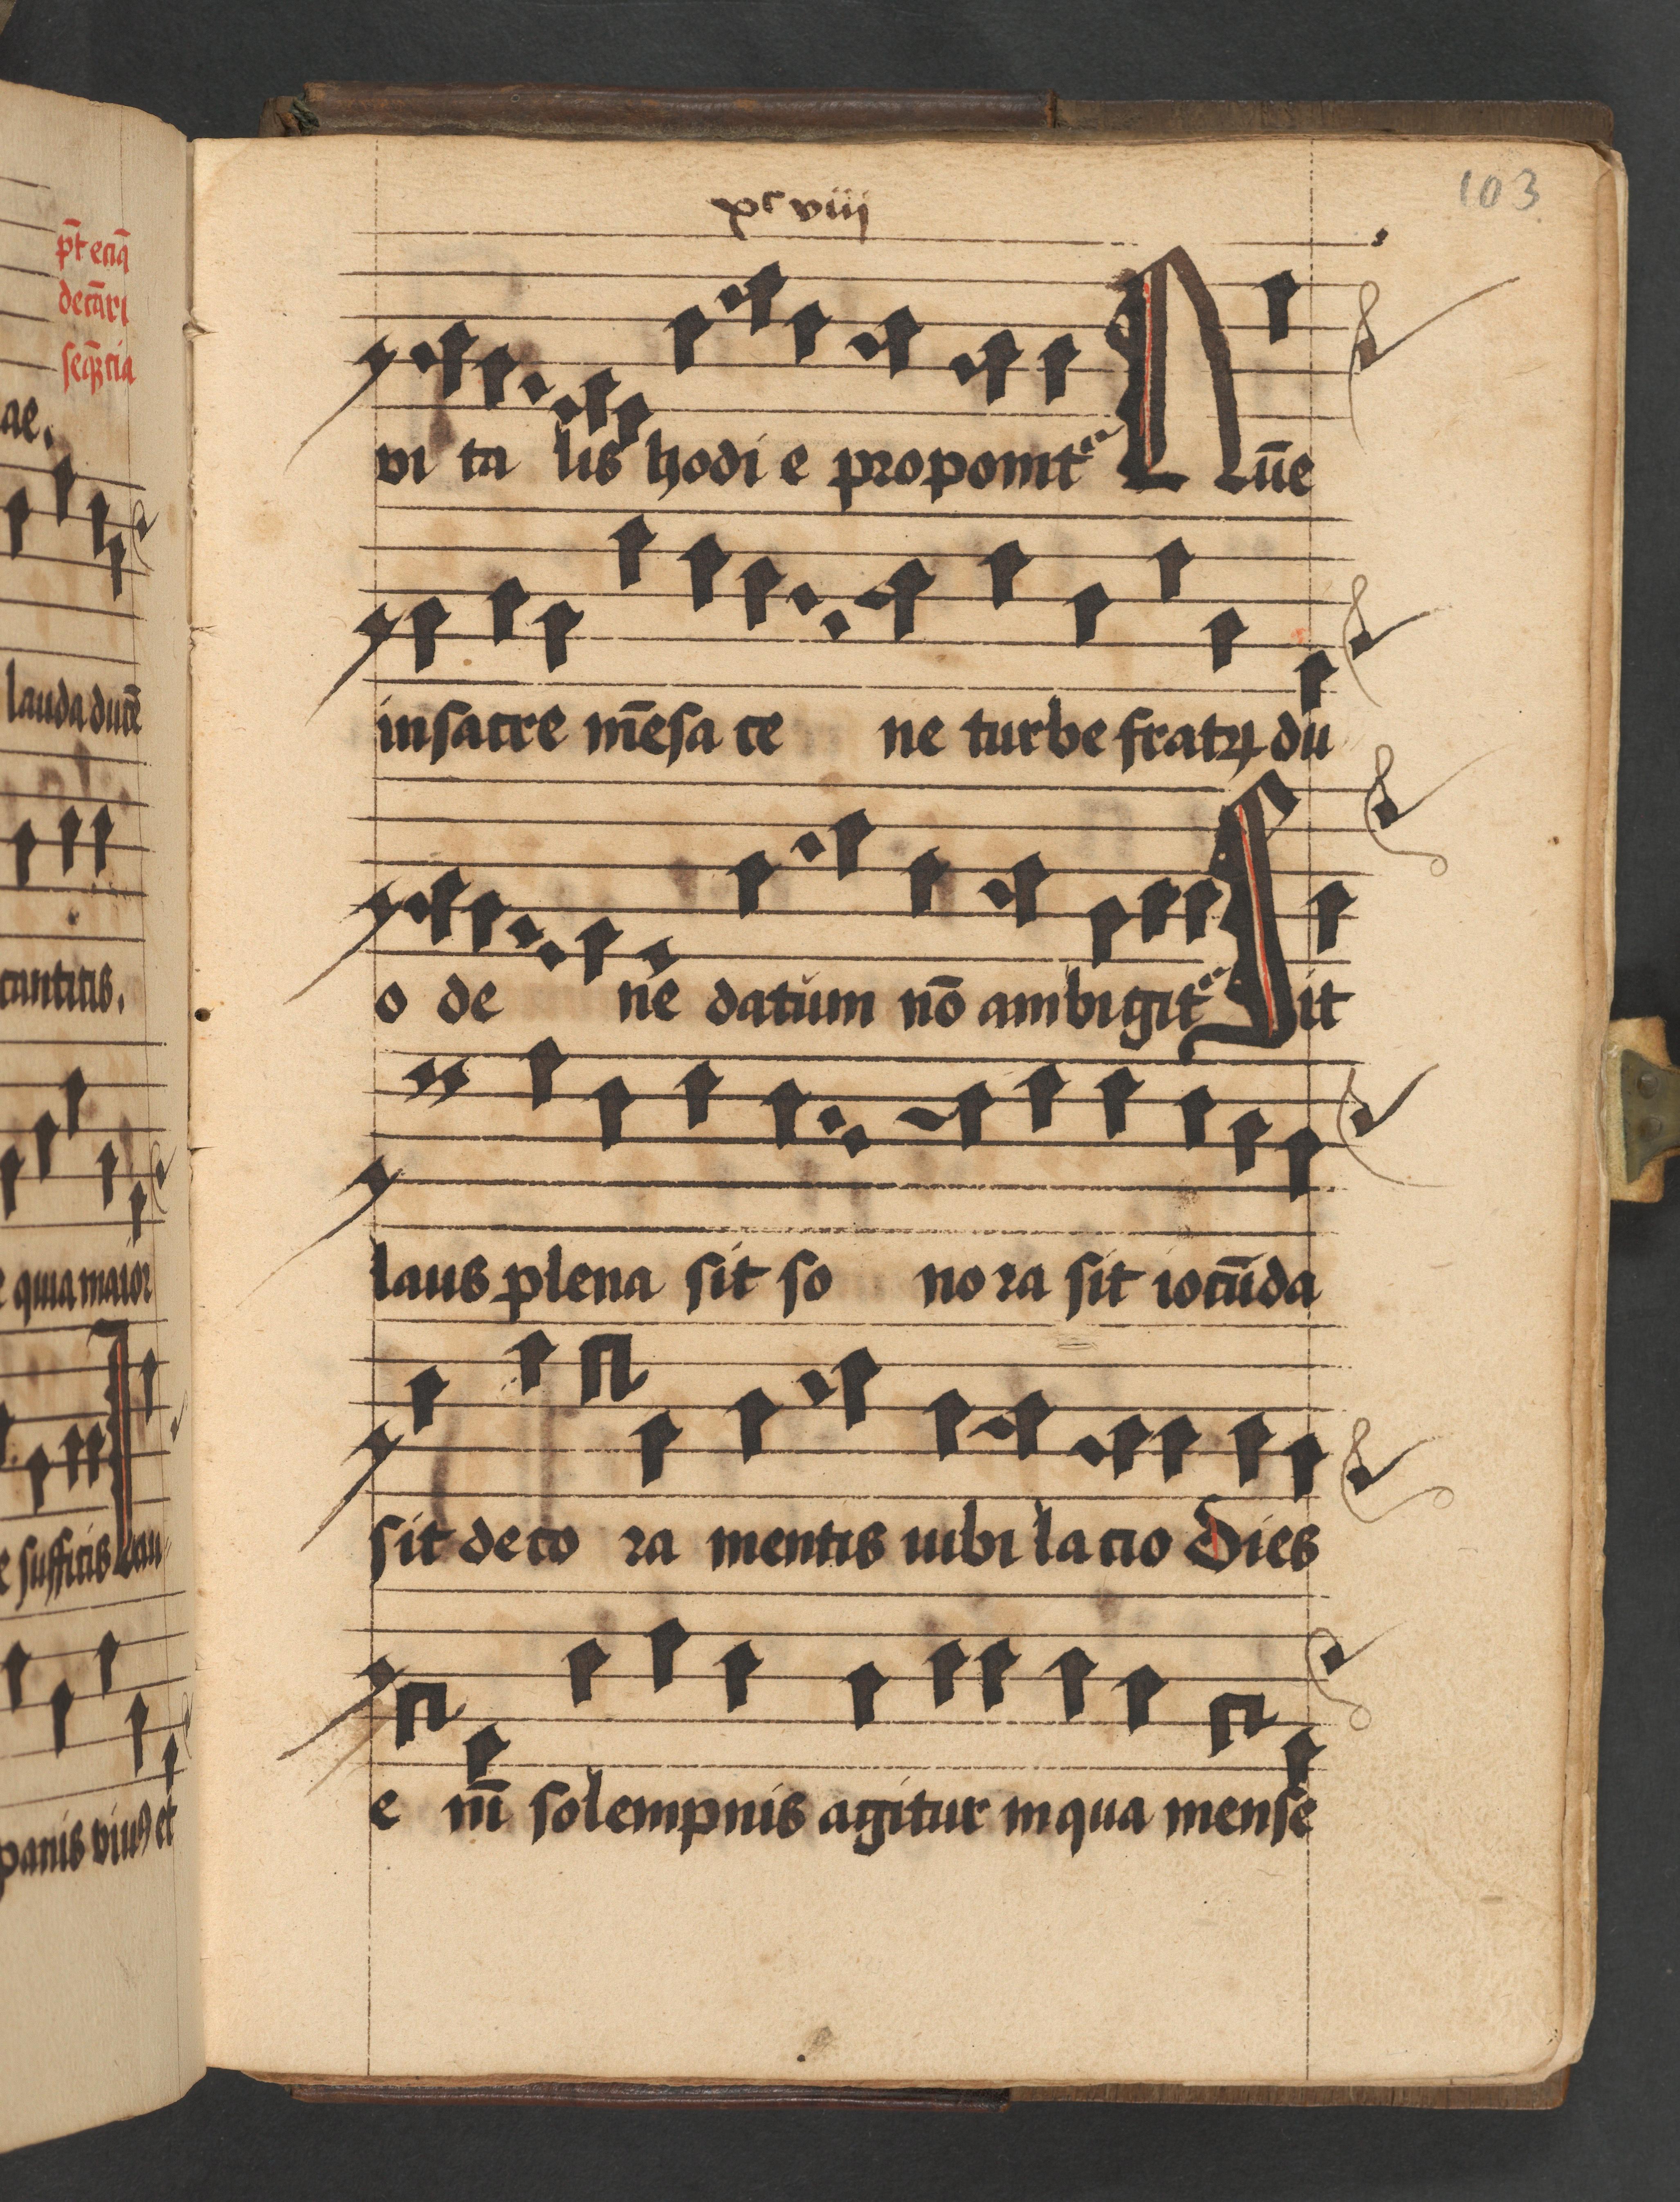 p̄t eciā
decā̄ri
seq̄ꝫtia
ae.
lauda ducē
cantitis.
e quia maior
e sufficis Lau
panis viuꝰ et
xcviiij
103
vi ta lis hodi e proponitᵉ Quē
in sacre mēsa ce ne turbe fratrꝝ du
o de ne datum nō ambigitᵉ Sit
laus plena sit so no ra sit iocūda
sit deco ra mentis iubi lacio Dies
e nī solempnis agitur in qua mense